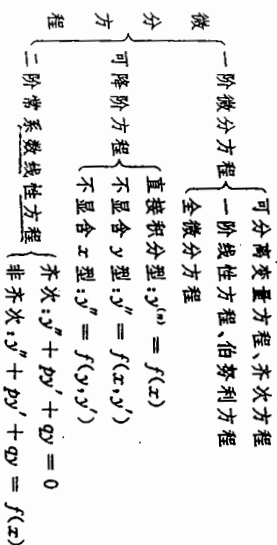 微分方程
一阶微分方程
可分离变量方程、齐次方程
一阶线性方程、伯努利方程
全微分方程
可降阶方程
直接积分型:y⁽ⁿ⁾ = f(x)
不显含 y 型:y″ = f(x,y′)
不显含 x 型:y″ = f(y,y′)
二阶常系数线性方程
齐次:y″ + py′ + qy = 0
非齐次:y″ + py′ + qy = f(x)